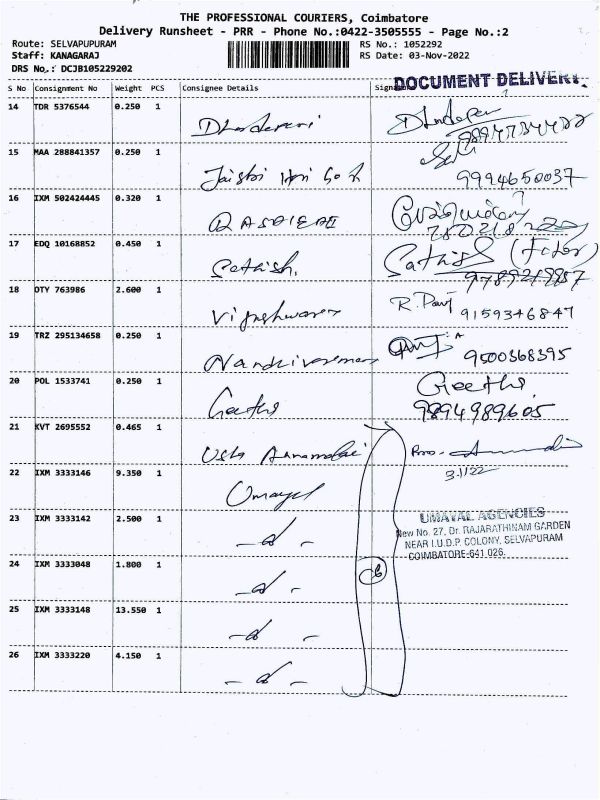 THE PROFESSIONAL COURIERS, Coimbatore
Delivery Runsheet - PRR - Phone No.:0422-3505555 - Page No.:2
Route: SELVAPUPURAM RS No.: 1052292
Staff: KANAGARAJ RS Date: 03-Nov-2022
DRS No.: DCJB105229202
DOCUMENT DELIVERY
S No Consignment No Weight PCS Consignee Details
14 TDR 5376544 0.250 1
15 MAA 288841357 0.250 1
9994650037
16 IXM 502424445 0.320 1
17 EDQ 10168852 0.450 1 Sathish. Sathish
18 OTY 763986 2.600 1 Vigneshwaran
9159346847
19 TRZ 295134658 0.250 1
9500368395
20 POL 1533741 0.250 1 Geetha Geetha
9894989605
21 KVT 2695552 0.465 1 Usha Annamalai
3.11.22
22 IXM 3333146 9.350 1 Umayal
23 IXM 3333142 2.500 1 - d -
UMAYAL AGENCIES
New No. 27, Dr. RAJARATHINAM GARDEN
NEAR I.U.D.P. COLONY, SELVAPURAM
COIMBATORE-641 026.
24 IXM 3333048 1.800 1 - d -
6
25 IXM 3333148 13.550 1 - d -
26 IXM 3333220 4.150 1 - d -